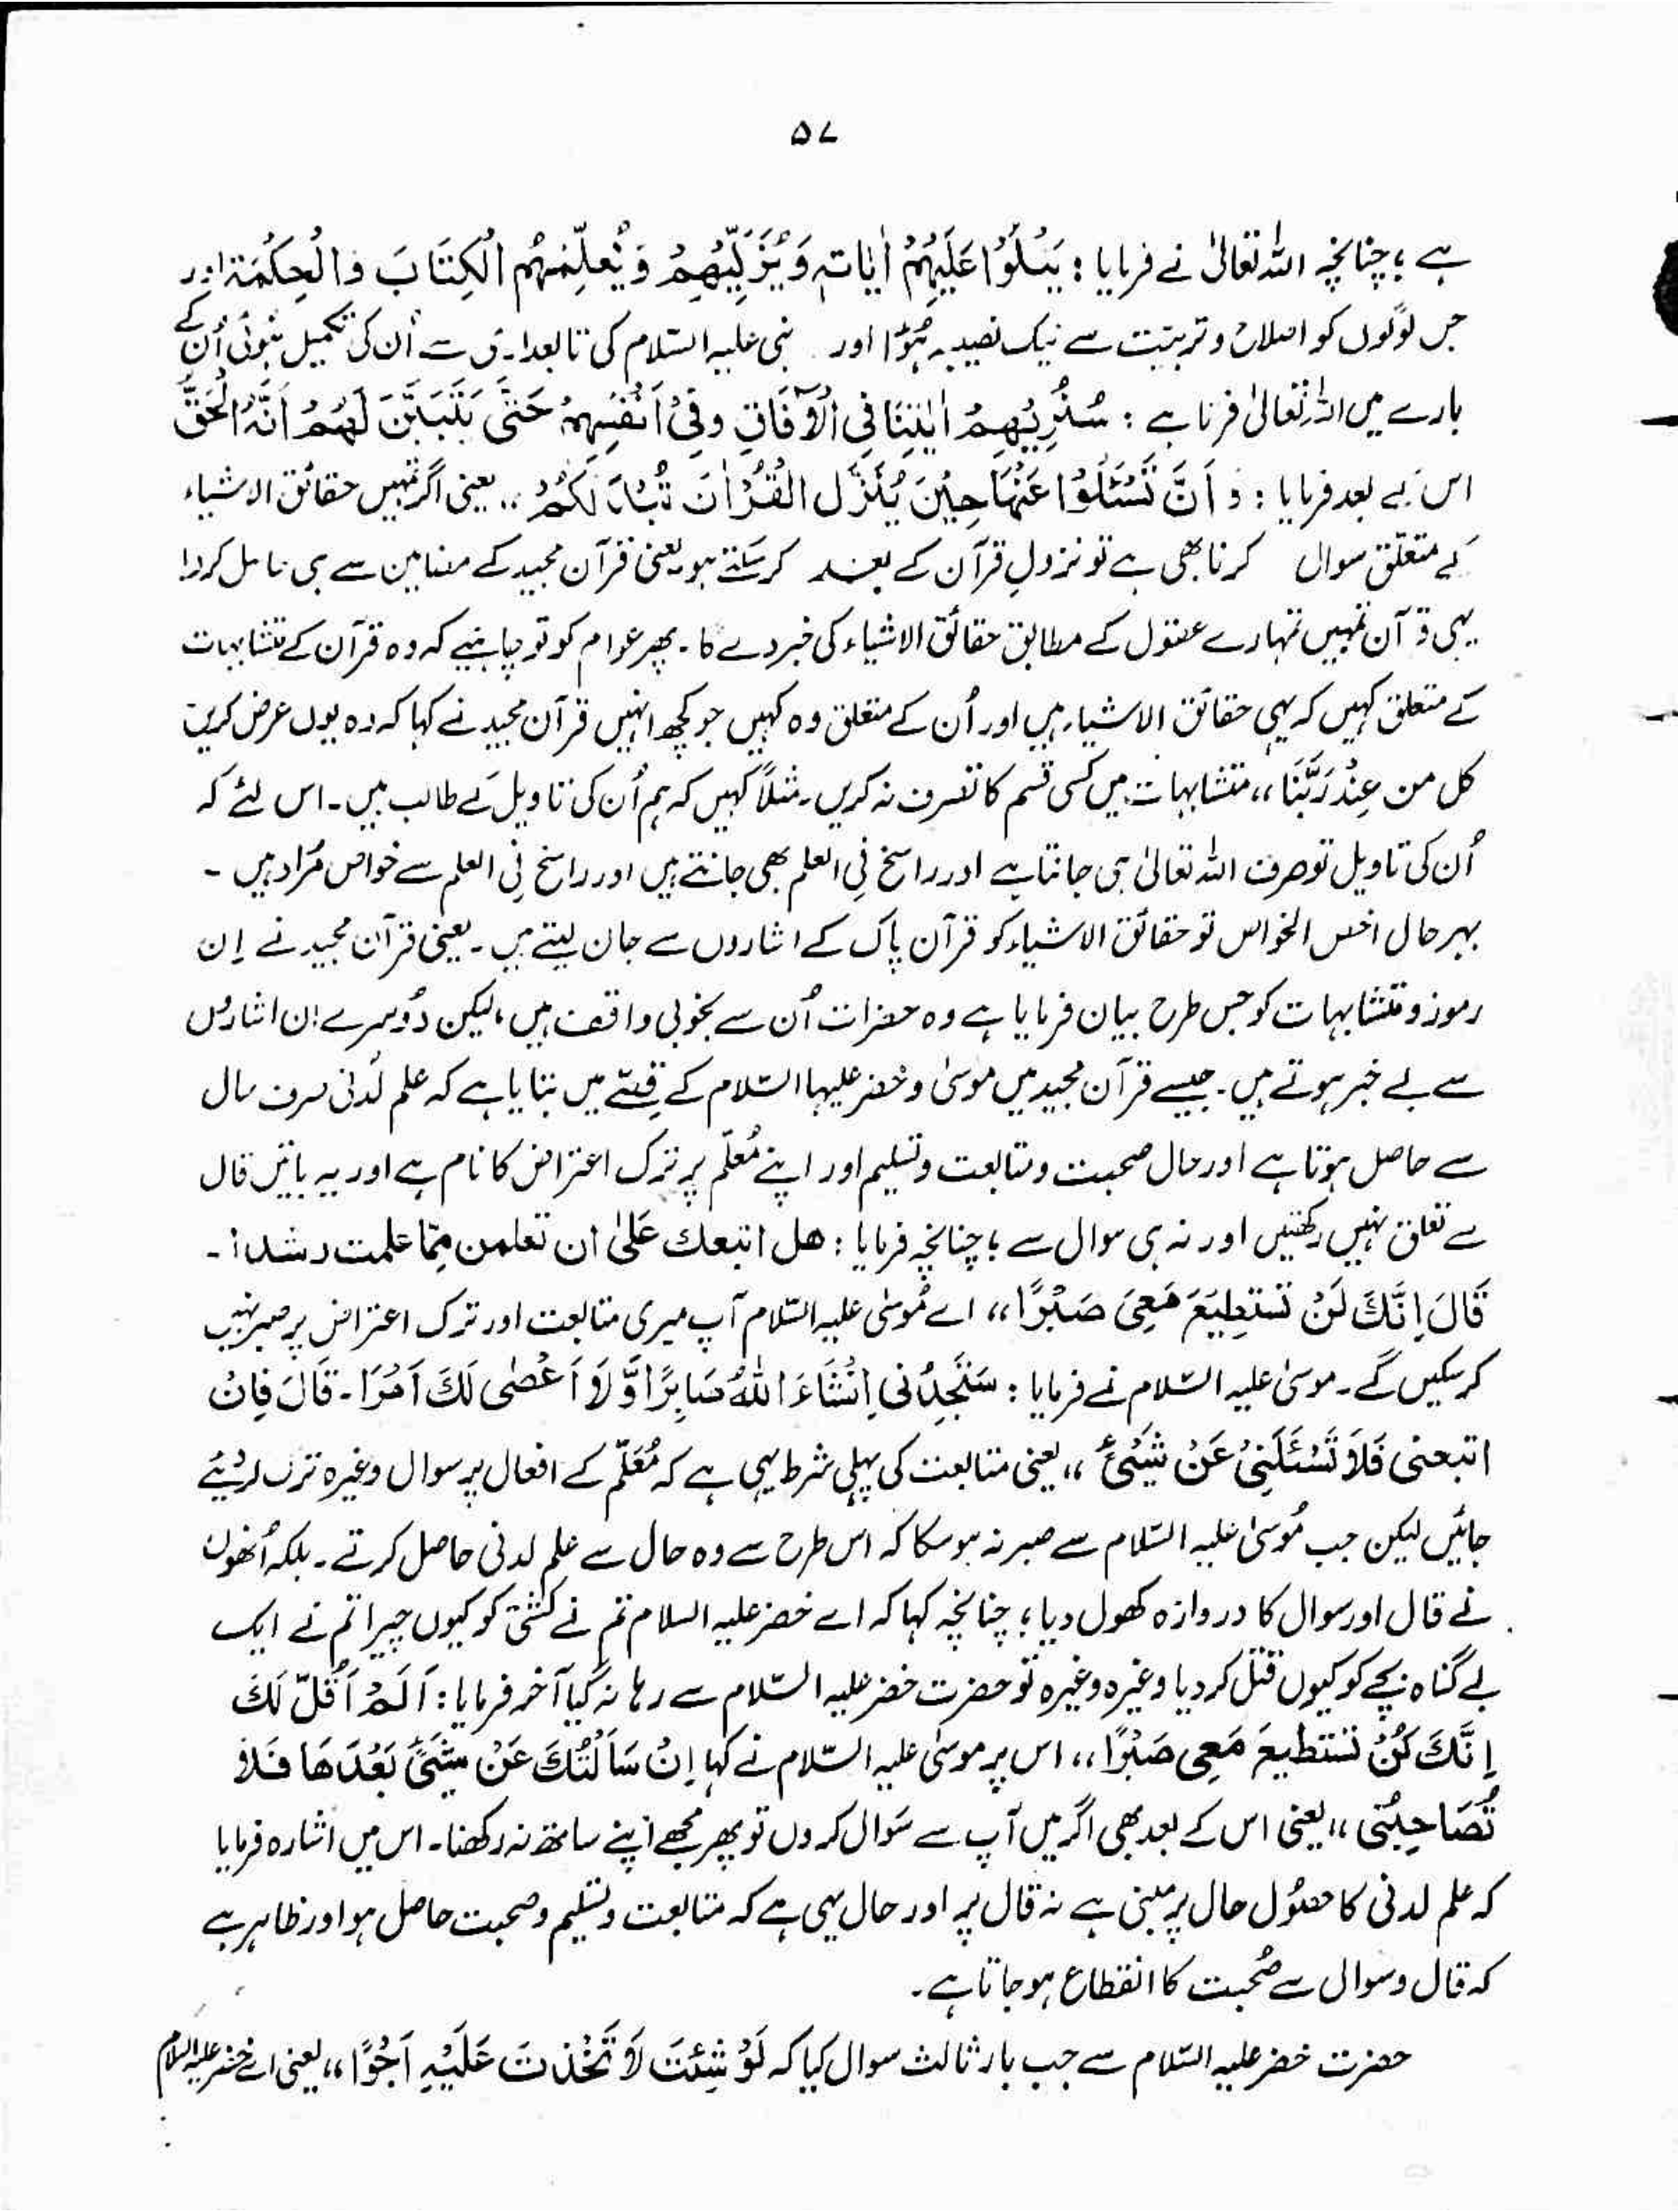 ۵۷
ہے ؛ چنانچہ اللہ تعالیٰ نے فرمایا : یَتْلُوْا عَلَیْہِمْ اٰیَاتِہٖ وَیُزَکِّیْہِمْ وَیُعَلِّمُہُمُ الْکِتَابَ وَالْحِکْمَۃَ اور
جن لوگوں کو اصلاح و تربیت سے نیک نصیب ہُوا اور نبی علیہ السّلام کی تابعداری سے اُن کی تکمیل ہُوئی اُن کے
بارے میں اللہ تعالیٰ فرماتا ہے : سَنُرِیْہِمْ اٰیٰتِنَا فِی الْاٰفَاقِ وَفِیْ اَنْفُسِہِمْ حَتّٰی یَتَبَیَّنَ لَہُمْ اَنَّہُ الْحَقُّ
اس کے بعد فرمایا : وَ اَنَّ تَسْئَلُوْا عَنْہَا حِیْنَ یُنَزَّلُ الْقُرْاٰنَ تُبْدَ لَکُمْ ،، یعنی اگر تمہیں حقائق الاشیاء
کے متعلّق سوال کرنا بھی ہے تو نزولِ قرآن کے بعد کر سکتے ہو یعنی قرآن مجید کے مضامین سے ہی حاصل کرو!
یہی قرآن تمہیں تمہارے عقول کے مطابق حقائق الاشیاء کی خبر دے گا ۔ پھر عوام کو تو چاہئیے کہ وہ قرآن کے متشابہات
کے متعلق کہیں کہ یہی حقائق الاشیاء ہیں اور اُن کے متعلق وہ کہیں جو کچھ انہیں قرآن مجید نے کہا کہ وہ یوں عرض کریں
کل من عِنْدِ رَبِّنَا ،، متشابہات میں کسی قسم کا تصرف نہ کریں ۔ مثلاً کہیں کہ ہم اُن کی تاویل کے طالب ہیں ۔ اس لئے کہ
اُن کی تاویل تو صرف اللہ تعالیٰ ہی جانتا ہے اور راسخ فی العلم بھی جانتے ہیں اور راسخ فی العلم سے خواص مُراد ہیں ۔
بہر حال اخص الخواص تو حقائق الاشیاء کو قرآن پاک کے اشاروں سے جان لیتے ہیں ۔ یعنی قرآن مجید نے اِن
رموز و متشابہات کو جس طرح بیان فرمایا ہے وہ حضرات اُن سے بخوبی واقف ہیں ، لیکن دُوسرے اِن اشاروں
سے بے خبر ہوتے ہیں ۔ جیسے قرآن مجید میں موسیٰ و خضر علیہما السّلام کے قِصّے میں بتایا ہے کہ علم لَدُنی صرف حال
سے حاصل ہوتا ہے اور حال صحبت و متابعت و تسلیم اور اپنے مُعلّم پر ترک اعتراض کا نام ہے اور یہ باتیں قال
سے تعلق نہیں رکھتیں اور نہ ہی سوال سے ؛ چنانچہ فرمایا : ھل اتبعک عَلیٰ ان تعلمن مِمّا علمت رشدا ۔
قَالَ اِنَّکَ لَنْ تَسْتَطِیْعَ مَعِیَ صَبْرًا ،، اے مُوسیٰ علیہ السّلام آپ میری متابعت اور ترک اعتراض پر صبر نہیں
کر سکیں گے ۔ موسیٰ علیہ السّلام نے فرمایا : سَتَجِدُنی اِنْشَاءَ اللّٰہُ صَابِرًا وَّلَا اَعْصٰی لَکَ اَمْرًا ۔ قَالَ فَاِنْ
اتبعنی فَلَا تَسْئَلَنِیْ عَنْ شَیْئٍ ،، یعنی متابعت کی پہلی شرط یہی ہے کہ مُعَلّم کے افعال پر سوال وغیرہ ترک کر دئیے
جائیں لیکن جب مُوسیٰ علیہ السّلام سے صبر نہ ہو سکا کہ اس طرح سے وہ حال سے علم لدنی حاصل کرتے ۔ بلکہ اُنھوں
نے قال اور سوال کا دروازہ کھول دیا ؛ چنانچہ کہا کہ اے خضر علیہ السلام تم نے کشتی کو کیوں چیرا تم نے ایک
بے گناہ بچے کو کیوں قتل کر دیا وغیرہ وغیرہ تو حضرت خضر علیہ السّلام سے رہا نہ گیا آخر فرمایا : اَلَمْ اَقُلْ لَکَ
اِنَّکَ لَنْ تَسْتَطِیعَ مَعِی صَبْرًا ،، اس پر موسیٰ علیہ السّلام نے کہا اِنْ سَاَلْتُکَ عَنْ شَیْءٍ بَعْدَھَا فَلَا
تُصَاحِبْنِی ،، یعنی اس کے بعد بھی اگر میں آپ سے سَوال کروں تو پھر مجھے اپنے ساتھ نہ رکھنا ۔ اس میں اشارہ فرمایا
کہ علم لدنی کا حصُول حال پر مبنی ہے نہ قال پر اور حال یہی ہے کہ متابعت و تسلیم و صحبت حاصل ہو اور ظاہر ہے
کہ قال و سوال سے صُحبت کا انقطاع ہو جاتا ہے ۔
حضرت خضر علیہ السّلام سے جب بار ثالث سوال کیا کہ لَوْ شِئْتَ لَا تَّخَذتَ عَلَیْہِ اَجْرًا ،، یعنی اے خضر علیہ السلام